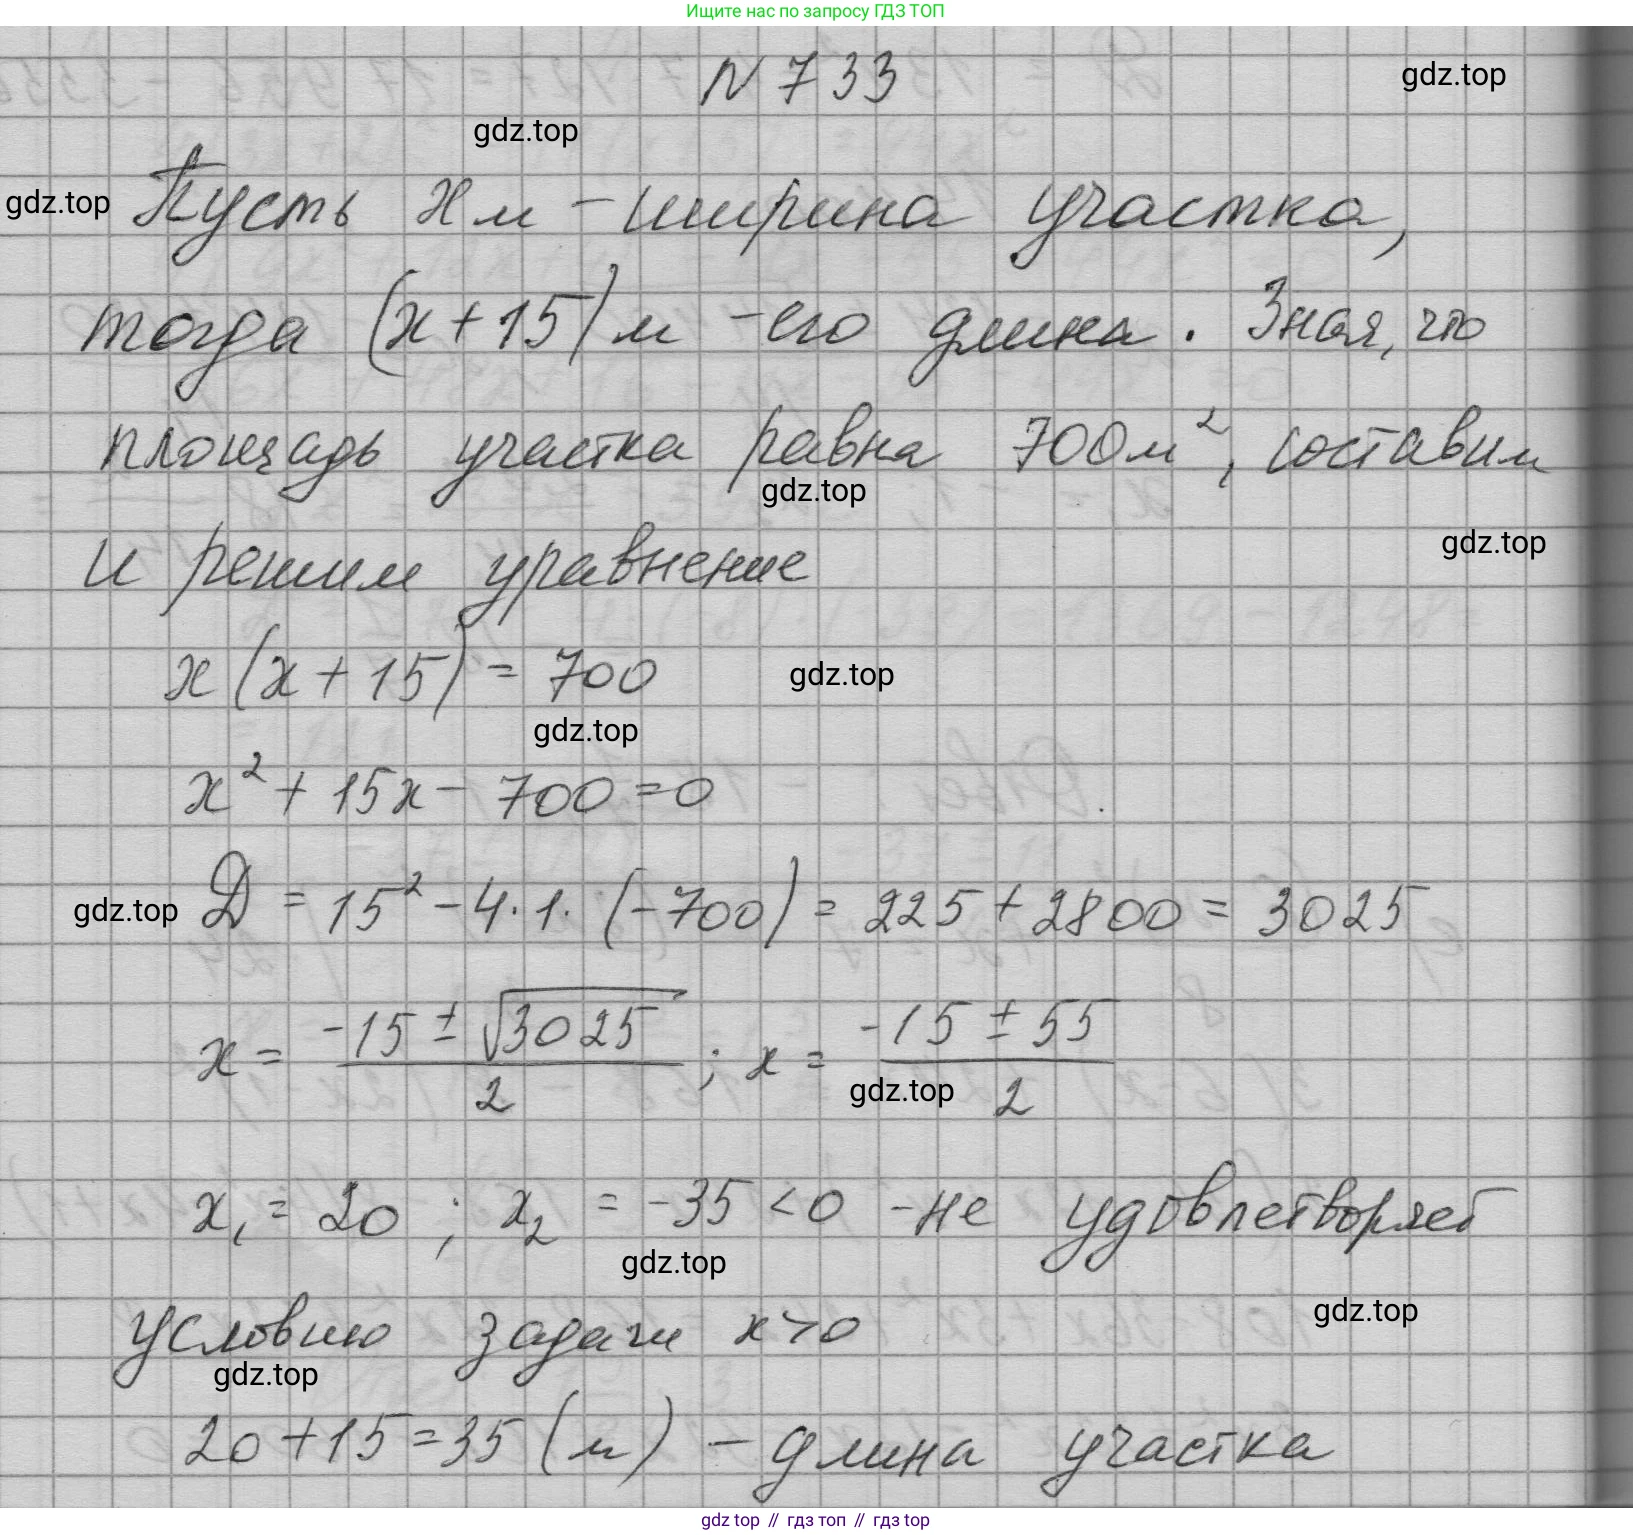 Ищите нас по запросу ГДЗ ТОП
N 733
gdz.top
gdz.top
gdz.top
Пусть x м - ширина участка,
тогда (x + 15) м - его длина. Зная, что
площадь участка равна 700 м², составим
gdz.top
и решим уравнение
gdz.top
x (x + 15) = 700
gdz.top
gdz.top
x² + 15x - 700 = 0
gdz.top
D = 15² - 4 · 1 · (-700) = 225 + 2800 = 3025
x = \frac{-15 ± √3025}{2} ; x = \frac{-15 ± 55}{2}
gdz.top
x₁ = 20 ; x₂ = -35 < 0 - не удовлетворяет
gdz.top
gdz.top
условию задачи x > 0
gdz.top
20 + 15 = 35 (м) - длина участка
gdz top // гдз топ // гдз top